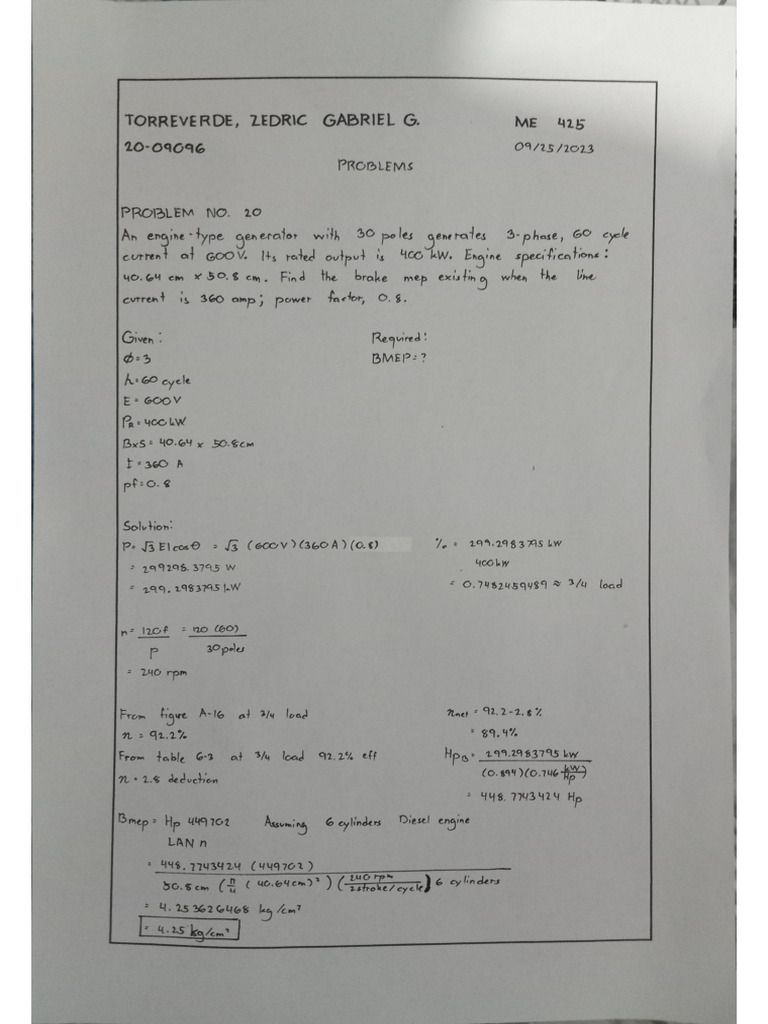 TORREVERDE, ZEDRIC GABRIEL G. ME 425
20-09096 09/25/2023
PROBLEMS
PROBLEM NO. 20
An engine-type generator with 30 poles generates 3-phase, 60 cycle
current at 600V. Its rated output is 400 kW. Engine specifications:
40.64 cm x 50.8 cm. Find the brake mep existing when the line
current is 360 amp; power factor, 0.8.
Given: Required:
Φ=3 BMEP=?
h=60 cycle
E = 600V
PR = 400 kW
BxS = 40.64 x 50.8cm
I = 360 A
pf=0.8
Solution:
P= √3 EIcosθ = √3 (600V)(360A)(0.8) % = 299.2983795 kW
= 299298.3795 W 400kW
= 299.2983795 kW = 0.7482459489 ≈ 3/4 load
n = 120f = 120 (60)
P 30 poles
= 240 rpm
From figure A-16 at 3/4 load nnet = 92.2-2.8%
n = 92.2% = 89.4%
From table 6-3 at 3/4 load 92.2% eff HpB = 299.2983795 kW
n = 2.8 deduction (0.894)(0.746 kW/Hp)
= 448.7743424 Hp
Bmep = Hp 449702 Assuming 6 cylinders Diesel engine
LAN n
= 448.7743424 (449702)
50.8cm (π/4 (40.64cm)²) (240 rpm / 2stroke/cycle) 6 cylinders
= 4.253626468 kg/cm²
= 4.25 kg/cm²